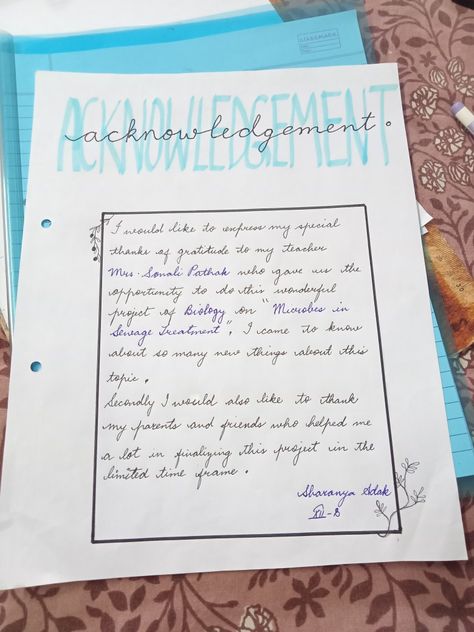 ACKNOWLEDGEMENT
acknowledgement.
I would like to express my special
thanks of gratitude to my teacher
Mrs. Sonali Pathak who gave us the
opportunity to do this wonderful
project of Biology on "Microbes in
Sewage Treatment", I came to know
about so many new things about this
topic.
Secondly I would also like to thank
my parents and friends who helped me
a lot in finalizing this project in the
limited time frame.
Sharanya Adak